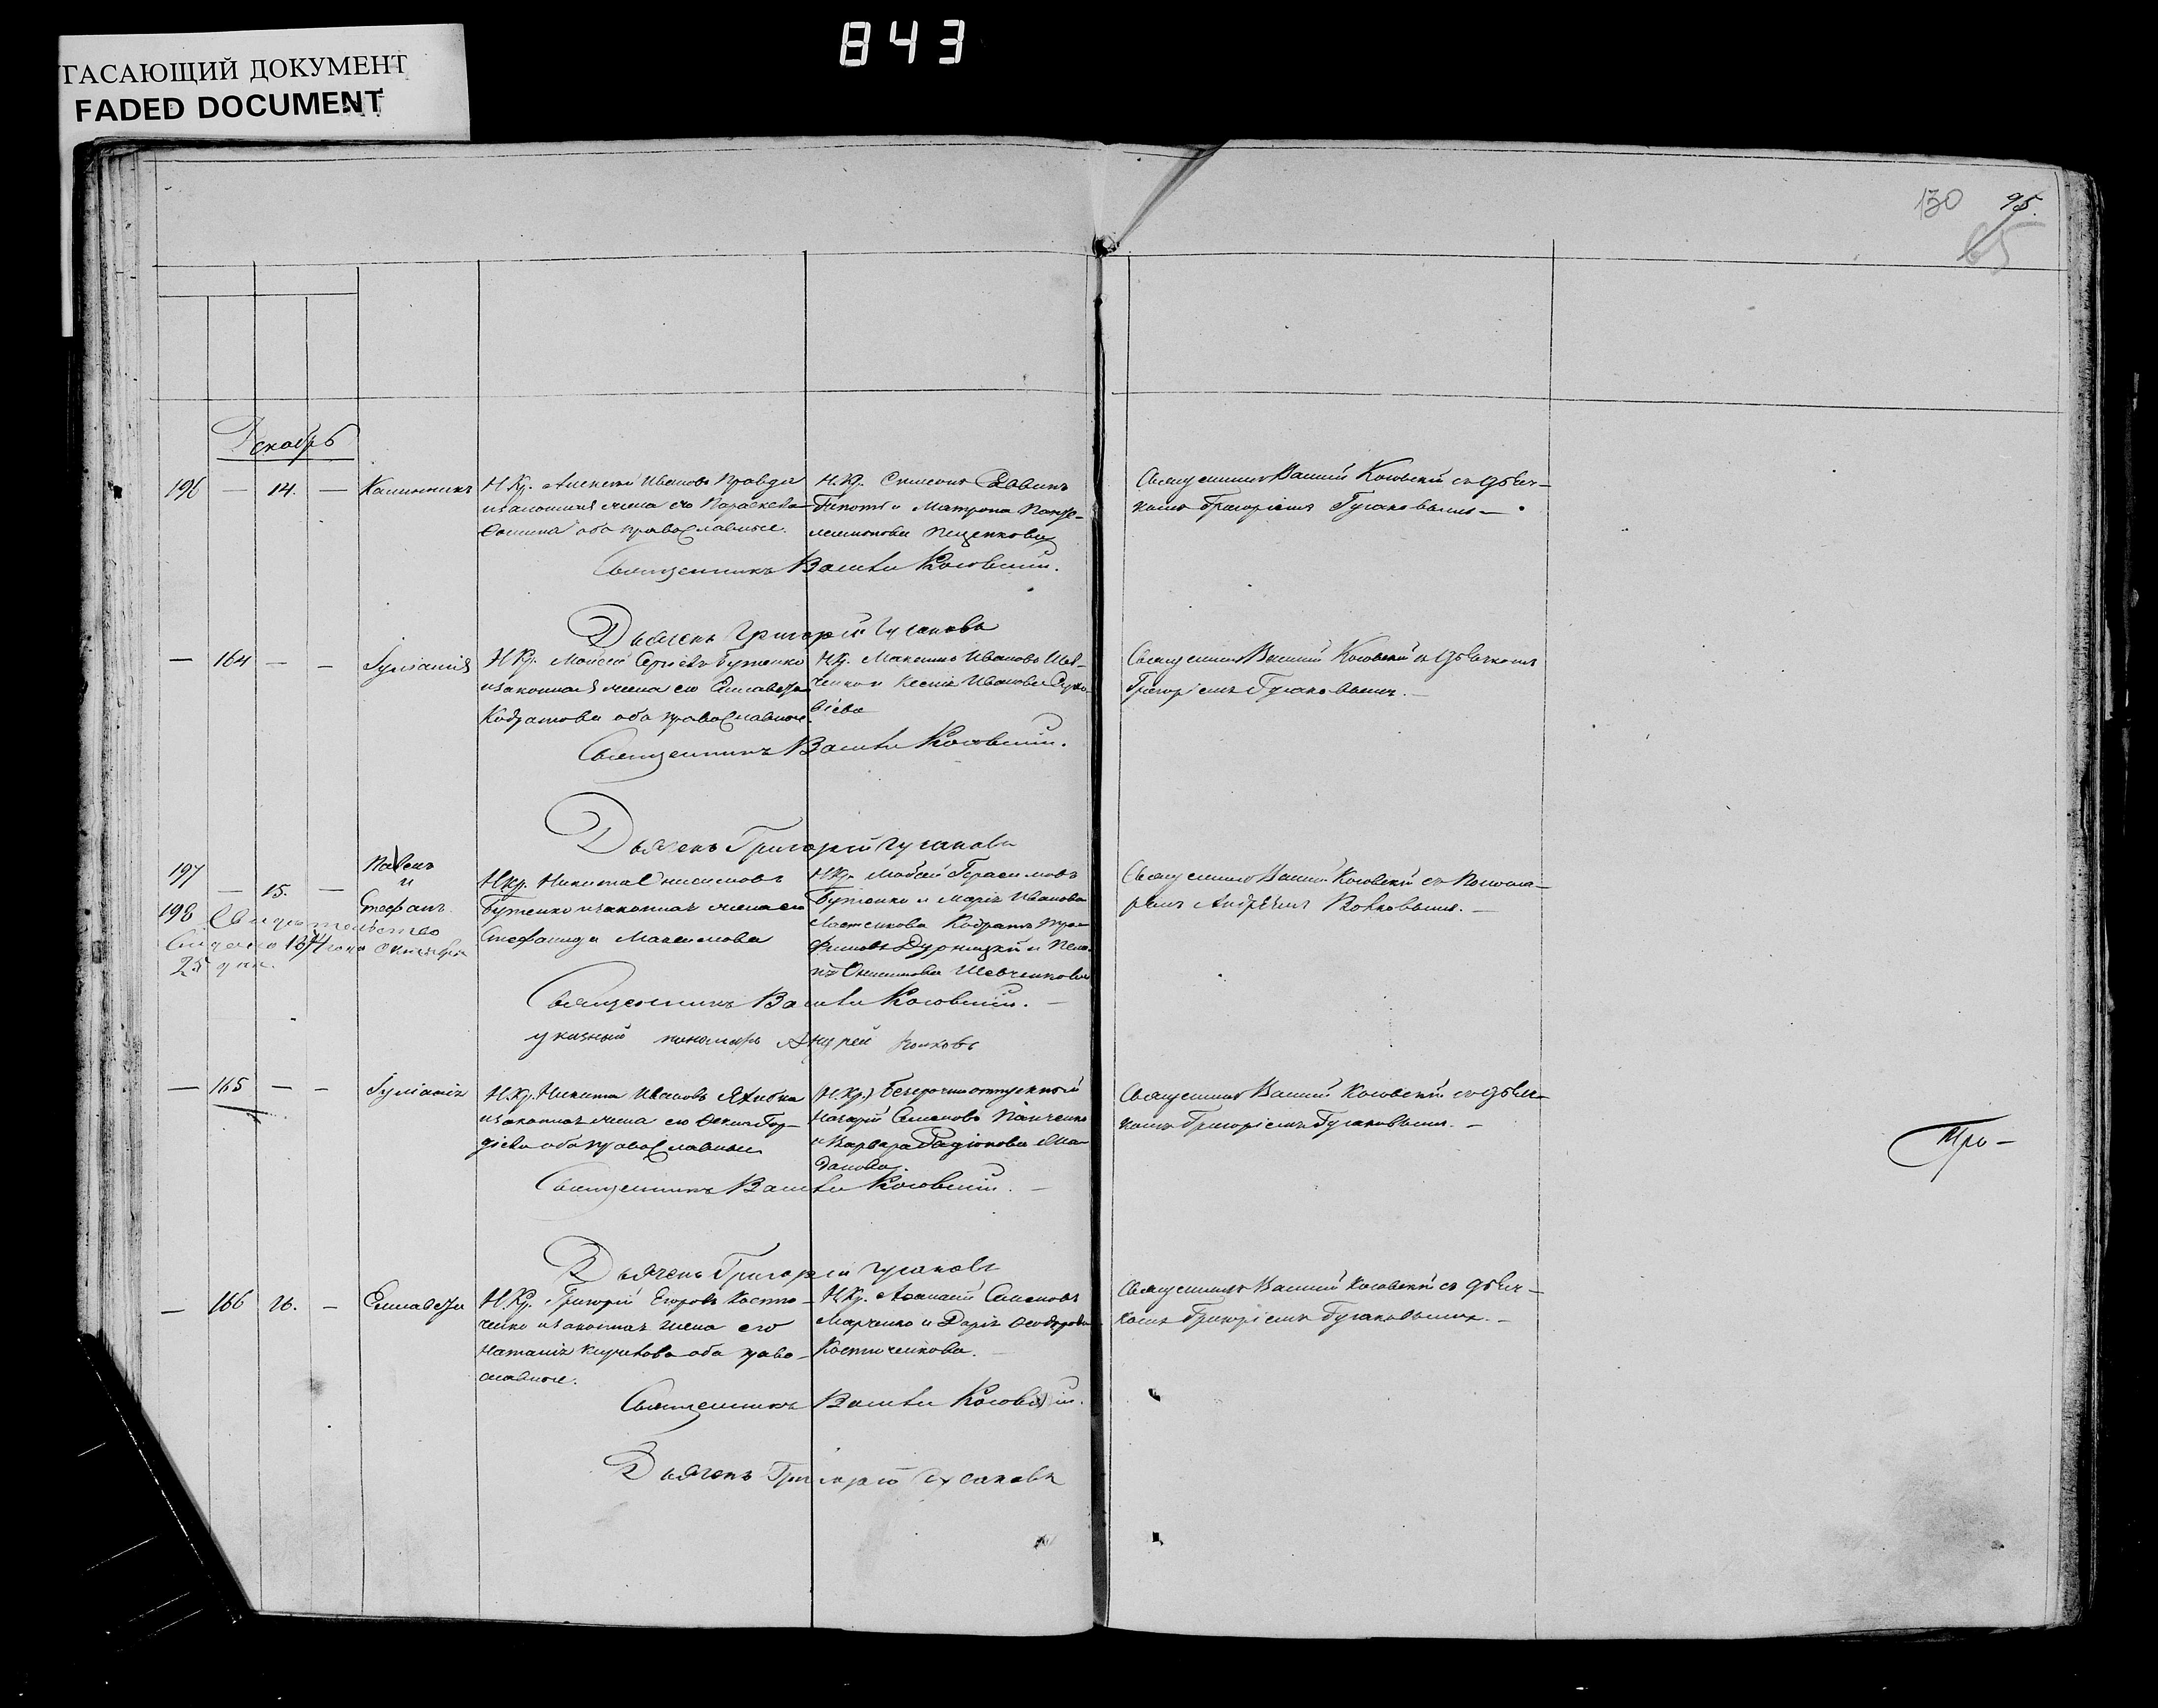 843
ГАСАЮЩИЙ ДОКУМЕНТ
FADED DOCUMENT
130 95.
65
Декабрь
196 — 14. — Калинникъ
Н.Кр. Алексей Ивановъ Правда
изаконная жена его Параскева
оба православные.
Н.Кр. Симеонъ Саввинъ
и Матрона Панте-
леимонова Пещенкова
Священникъ Василий Косовский съ дьяч-
комъ Григоріемъ Гусаковымъ —
Священникъ Василий Косовский.
Дьячекъ Григорій Гусаковъ
— 164 — — Іуліанія
Н.Кр. Моисей Сергіевъ Бутенко
изаконная жена его Елисавета
Кодратова оба православные.
Н.Кр. Максимъ Ивановъ Шев-
ченко и Ксенія Иванова
Священникъ Василий Косовский съ дьячкомъ
Григоріемъ Гусаковымъ. —
Священникъ Василий Косовский.
Дьячекъ Григорій Гусаковъ
197 — 15. — Павелъ
и
198 Стефанъ
Свидетельство
Октября
25 дня.
Н.Кр. Никита Онисимовъ
Бутенко изаконная жена его
Стефанида Максимова
Н.Кр. Мойсей Герасимовъ
Бутенко и Марія Иванова
Кодратъ Тро-
фимовъ и Пела-
гія Онисимова Шевченкова
Священникъ Василий Косовский съ Понома-
ремъ Андреемъ Волковымъ. —
Священникъ Василий Косовский. —
указный пономарь Андрей Волковъ
— 165 — — Іуліанія
Н.Кр. Никита Ивановъ
изаконная жена его Гор-
діева оба православные
(Н.Кр.) Безсрочно отпускной
Назарій Семеновъ Панченко
и Варвара Радіонова
Священникъ Василий Косовский съ дьяч-
комъ Григоріемъ Гусаковымъ. —
Тро-
Священникъ Василий Косовский. —
Дьячекъ Григорій Гусаковъ
— 166 16. — Елисавета
Н.Кр. Григорій Егоровъ Кости-
ченко изаконная жена его
Наталія оба право-
славные.
Н.Кр. Семеновъ
Марченко и Дарія Феодорова
Костиченкова. —
Священникъ Василий Косовский съ дьяч-
комъ Григоріемъ Гусаковымъ. —
Священникъ Василий Косовский.
Дьячекъ Григорій Гусаковъ